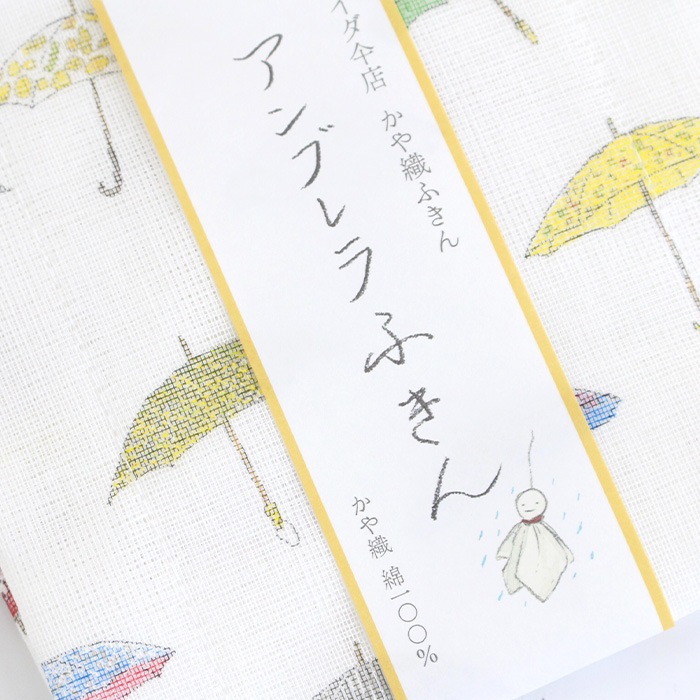 イダ傘店 かや織ふきん
アンブレラふきん
かや織 綿一〇〇%